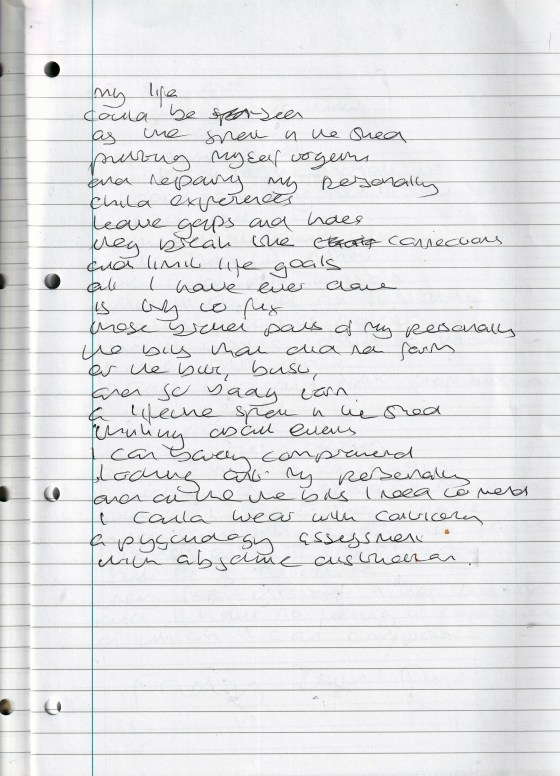 my life
could be seen
as time spent in the shed
putting myself together
and repairing my personality
child experiences
leave gaps and holes
they break the connections
and limit life goals
all I have ever done
is try to fix
those broken parts of my personality
the bits that did not form
or the burr, burst,
and so badly torn
a lifetime spent in the shed
thinking about events
I can barely comprehend
looking at my personality
and all the the bits I need to mend
I could wear with
a pyscology assessment
with absolute distinction.